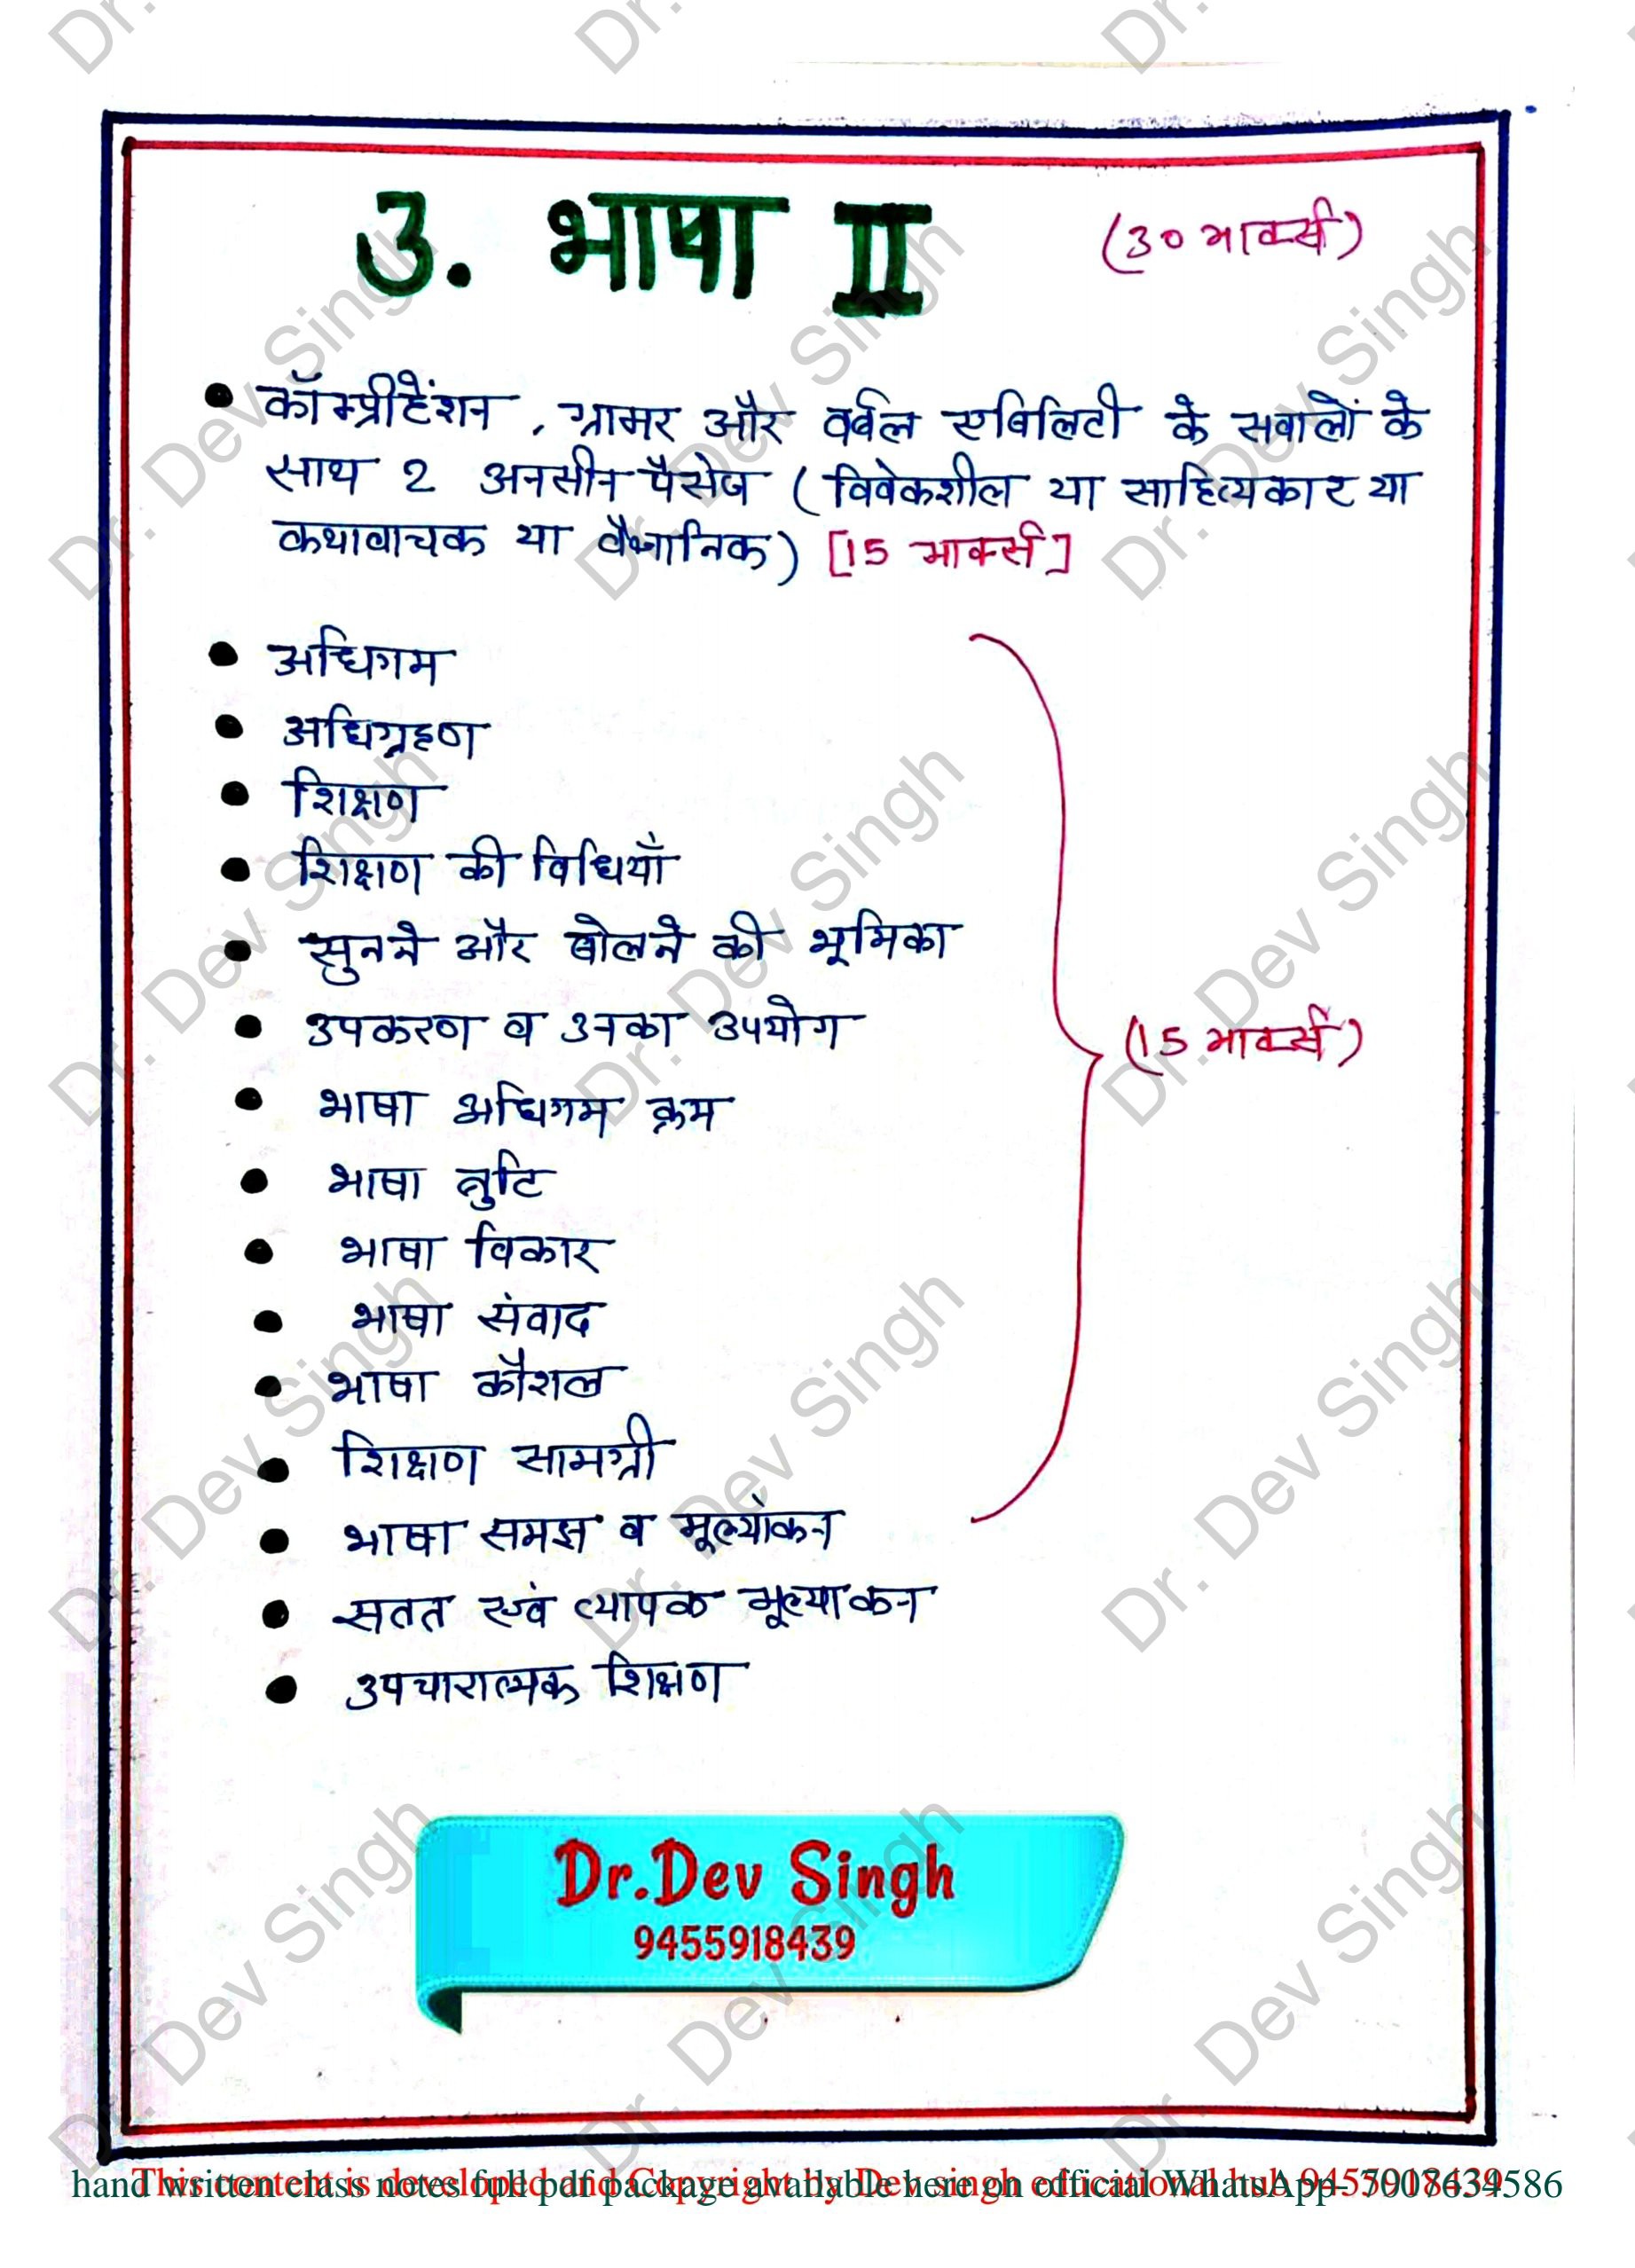 3. भाषा II
(30 मार्क्स)
• कॉम्प्रीहेंशन, ग्रामर और वर्बल एबिलिटी के सवालों के
साथ 2 अनसीन पैसेज (विवेकशील या साहित्यकार या
कथावाचक या वैज्ञानिक) [15 मार्क्स]
• अधिगम
• अधिग्रहण
• शिक्षण
• शिक्षण की विधियाँ
• सुनने और बोलने की भूमिका
• उपकरण व उनका उपयोग
(15 मार्क्स)
• भाषा अधिगम क्रम
• भाषा त्रुटि
• भाषा विकार
• भाषा संवाद
• भाषा कौशल
• शिक्षण सामग्री
• भाषा समझ व मूल्यांकन
• सतत एवं व्यापक मूल्याकन
• उपचारात्मक शिक्षण
Dr.Dev Singh
9455918439
This content is developed and Copyright by Dev singh educational hub 9455918439
hand written class notes full pdf package available here on official WhatsApp- 7007634586
Dr. Dev Singh